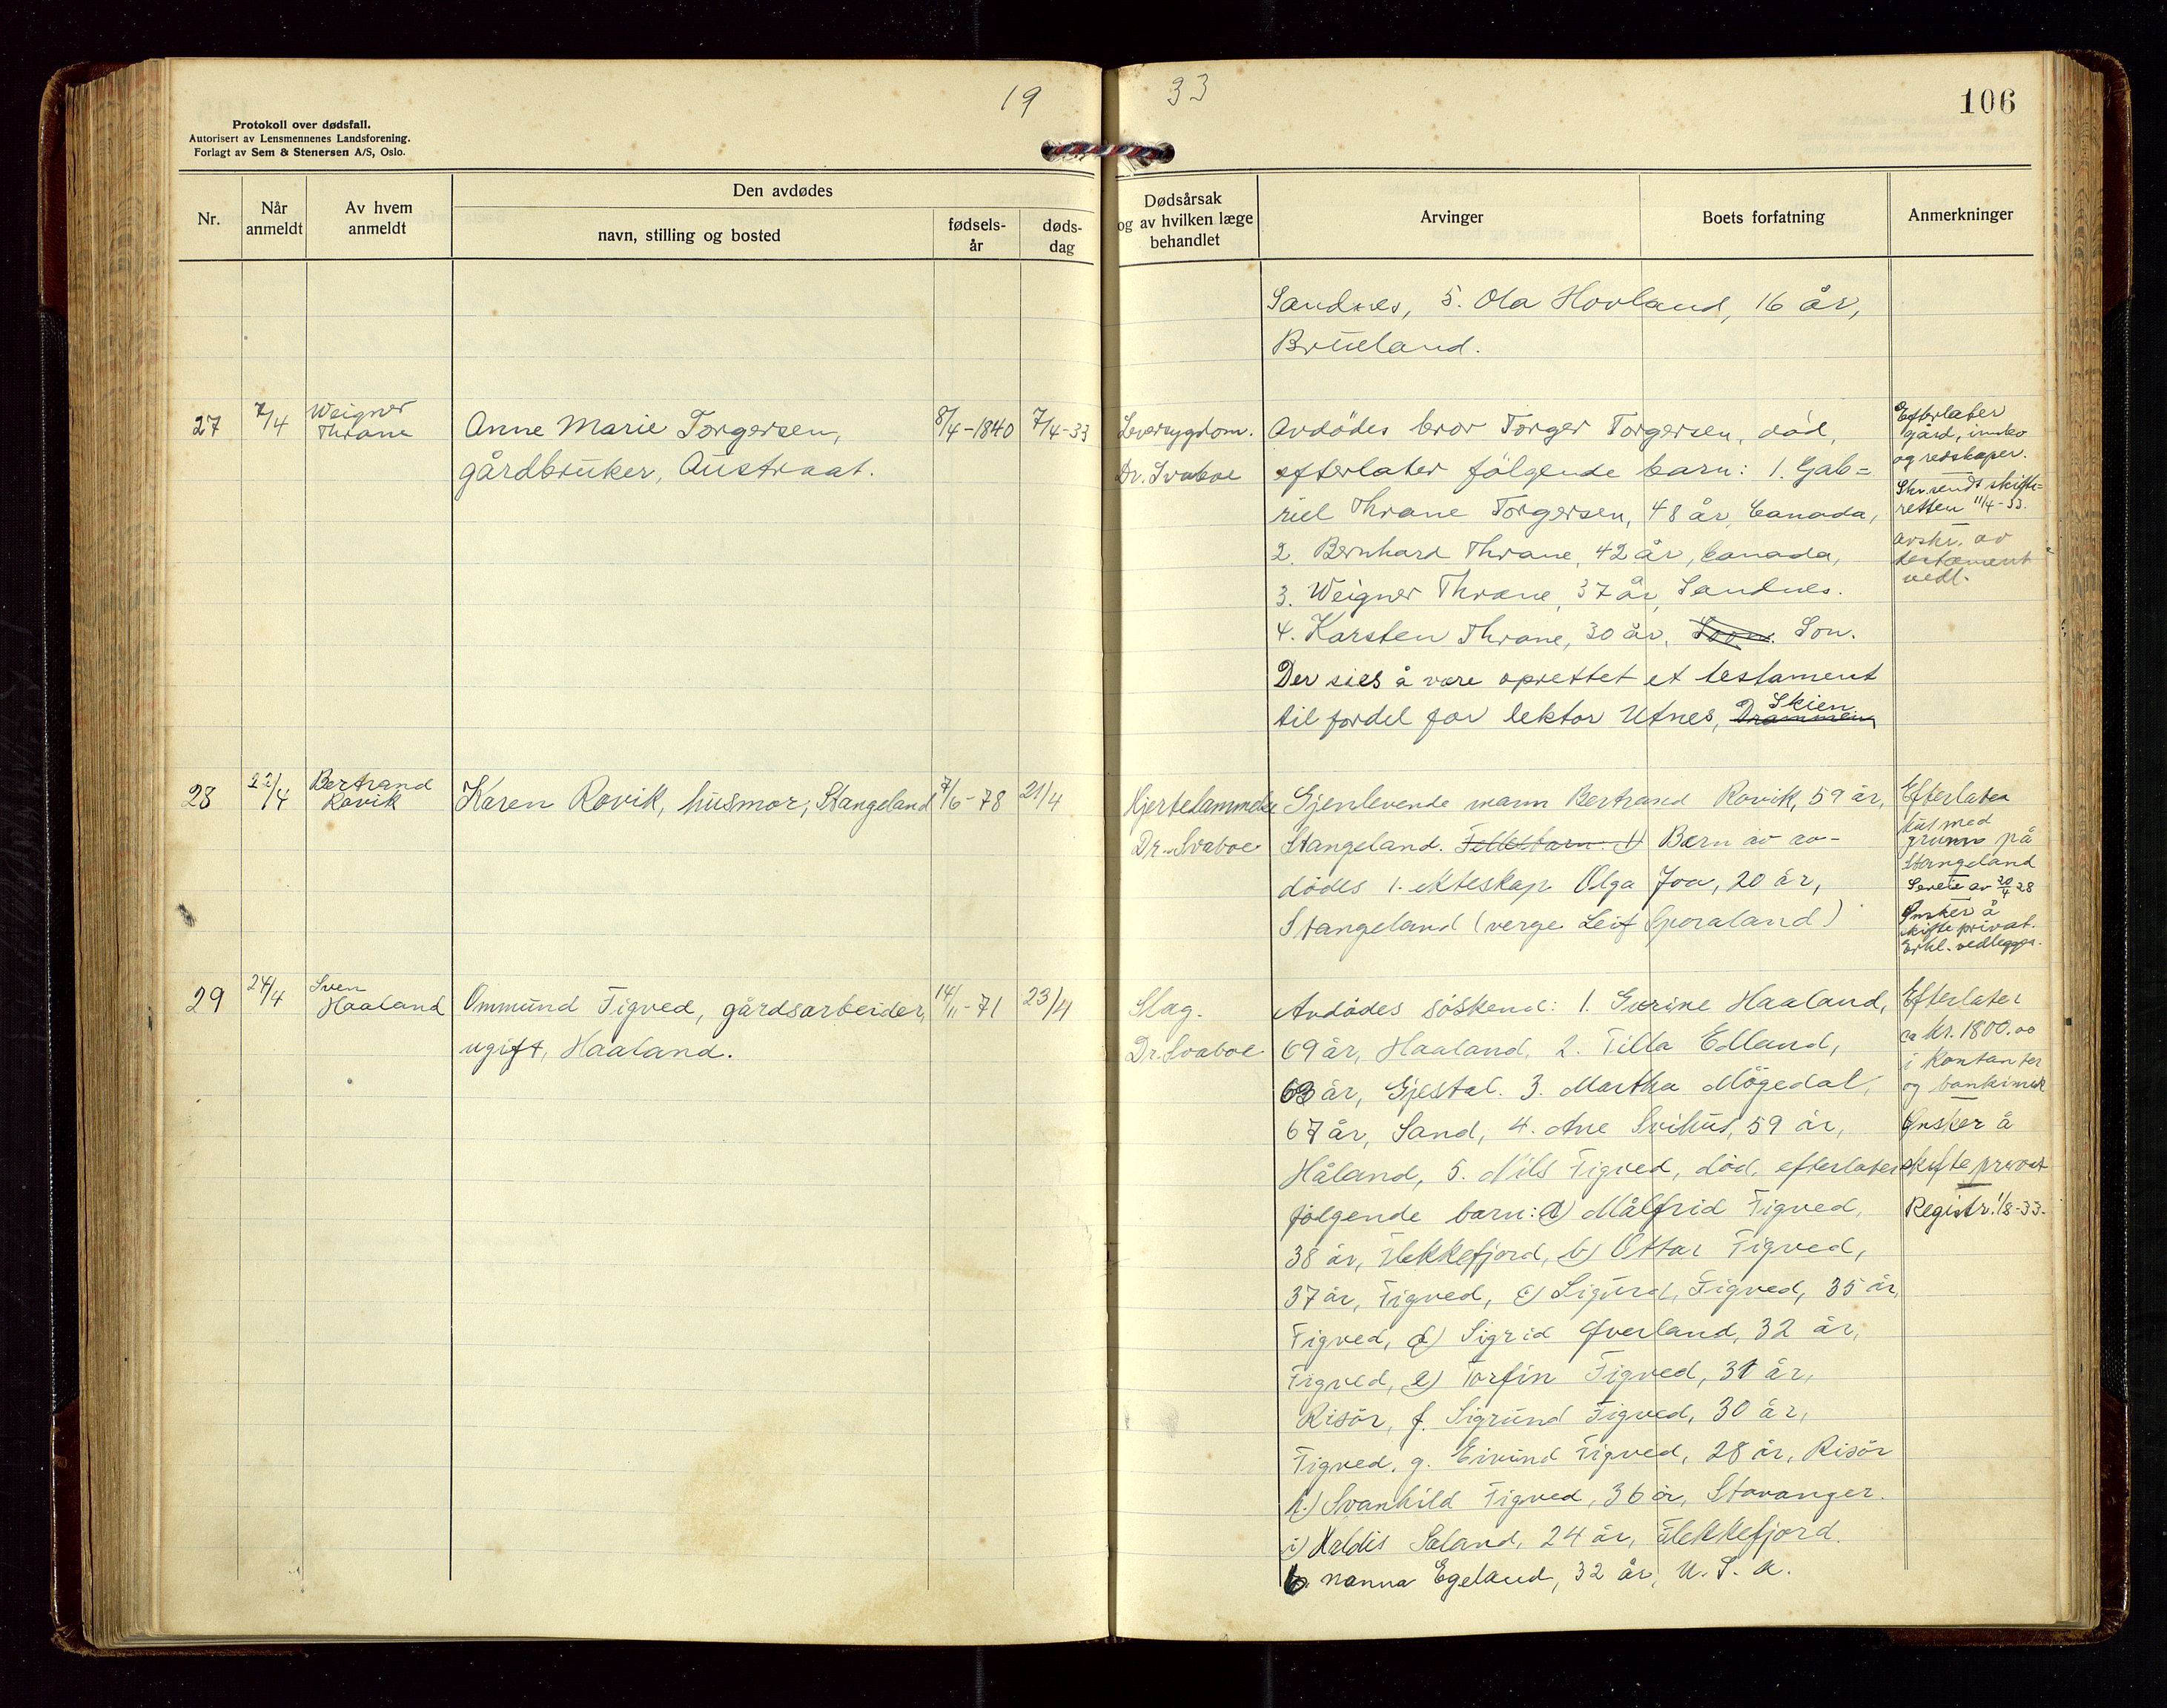 19 33
106
Protokoll over dødsfall.
Autorisert av Lensmennenes Landsforening.
Forlagt av Sem & Stenersen A/S, Oslo.
Nr.
Når anmeldt
Av hvem anmeldt
Den avdødes
navn, stilling og bosted
fødsels-år
døds-dag
Dødsårsak og av hvilken læge behandlet
Arvinger
Boets forfatning
Anmerkninger
Sandnes, 5. Ola Hovland, 16 år,
Brueland.
27
7/4
Weigner
Thrane
Anne Marie Torgersen,
gårdbruker, Austraat.
8/4-1840
7/4-33
Leversygdom.
Dr. Svaboe
Avdødes bror Torger Torgersen, død,
efterlater følgende barn: 1. Gab=
riel Thrane Torgersen, 48 år, Canada,
2. Bernhard Thrane, 42 år, Canada,
3. Weigner Thrane, 37 år, Sandnes.
4. Karsten Thrane, 30 år, Son.
Der sies å være oprettet et testament
til fordel for lektor Utnes, Drammen Skien
Efterlater
gård, innbo
og redskaper.
Skr. sendt skifte-
retten 11/4-33.
avskr. av
testament
vedl.
28
22/4
Bertrand
Rovik
Karen Rovik, husmor, Stangeland
7/6-78
21/4
Hjertelammelse
Dr. Svaboe
Gjenlevende mann Bertrand Rovik, 59 år,
Stangeland. Fellesbarn: 1) Barn av av-
dødes 1. ekteskap Olga Joa, 20 år,
Stangeland (verge Leif Sporaland)
Efterlater
hus med
grunn på
Stangeland
av 20/4 28
Ønsker å
skifte privat.
Erkl. vedlegges.
29
24/4
Sven
Haaland
Ommund Tigved, gårdsarbeider,
ugift, Haaland.
14/11-71
23/4
Slag.
Dr. Svaboe
Avdødes søskend: 1. Gurine Haaland,
69 år, Haaland, 2. Tilla Edland,
63 år, Gjestal. 3. Martha Mögedal,
67 år, Sand, 4. Ane Svihus, 59 år,
Håland, 5. Nils Tigved, död, efterlater
følgende barn: a) Målfrid Tigved,
38 år, Flekkefjord, b) Ottar Tigved,
37 år, Tigved, c) Sigurd Tigved, 35 år,
Tigved, d) Sigrid Øverland, 32 år,
Tigved, e) Torfin Tigved, 31 år,
Risör, f. Sigrund Tigved, 30 år,
Tigved, g. Eivind Tigved, 28 år, Risör
h) Svanhild Tigved, 36 år, Stavanger.
i) Haldis Saland, 24 år, Flekkefjord.
6. Nanna Egeland, 32 år, U. S. A.
Efterlater
ca kr. 1800.00
i kontanter
og bankinnsk
Ønsker å
skifte privat
Registr. 1/8-33.